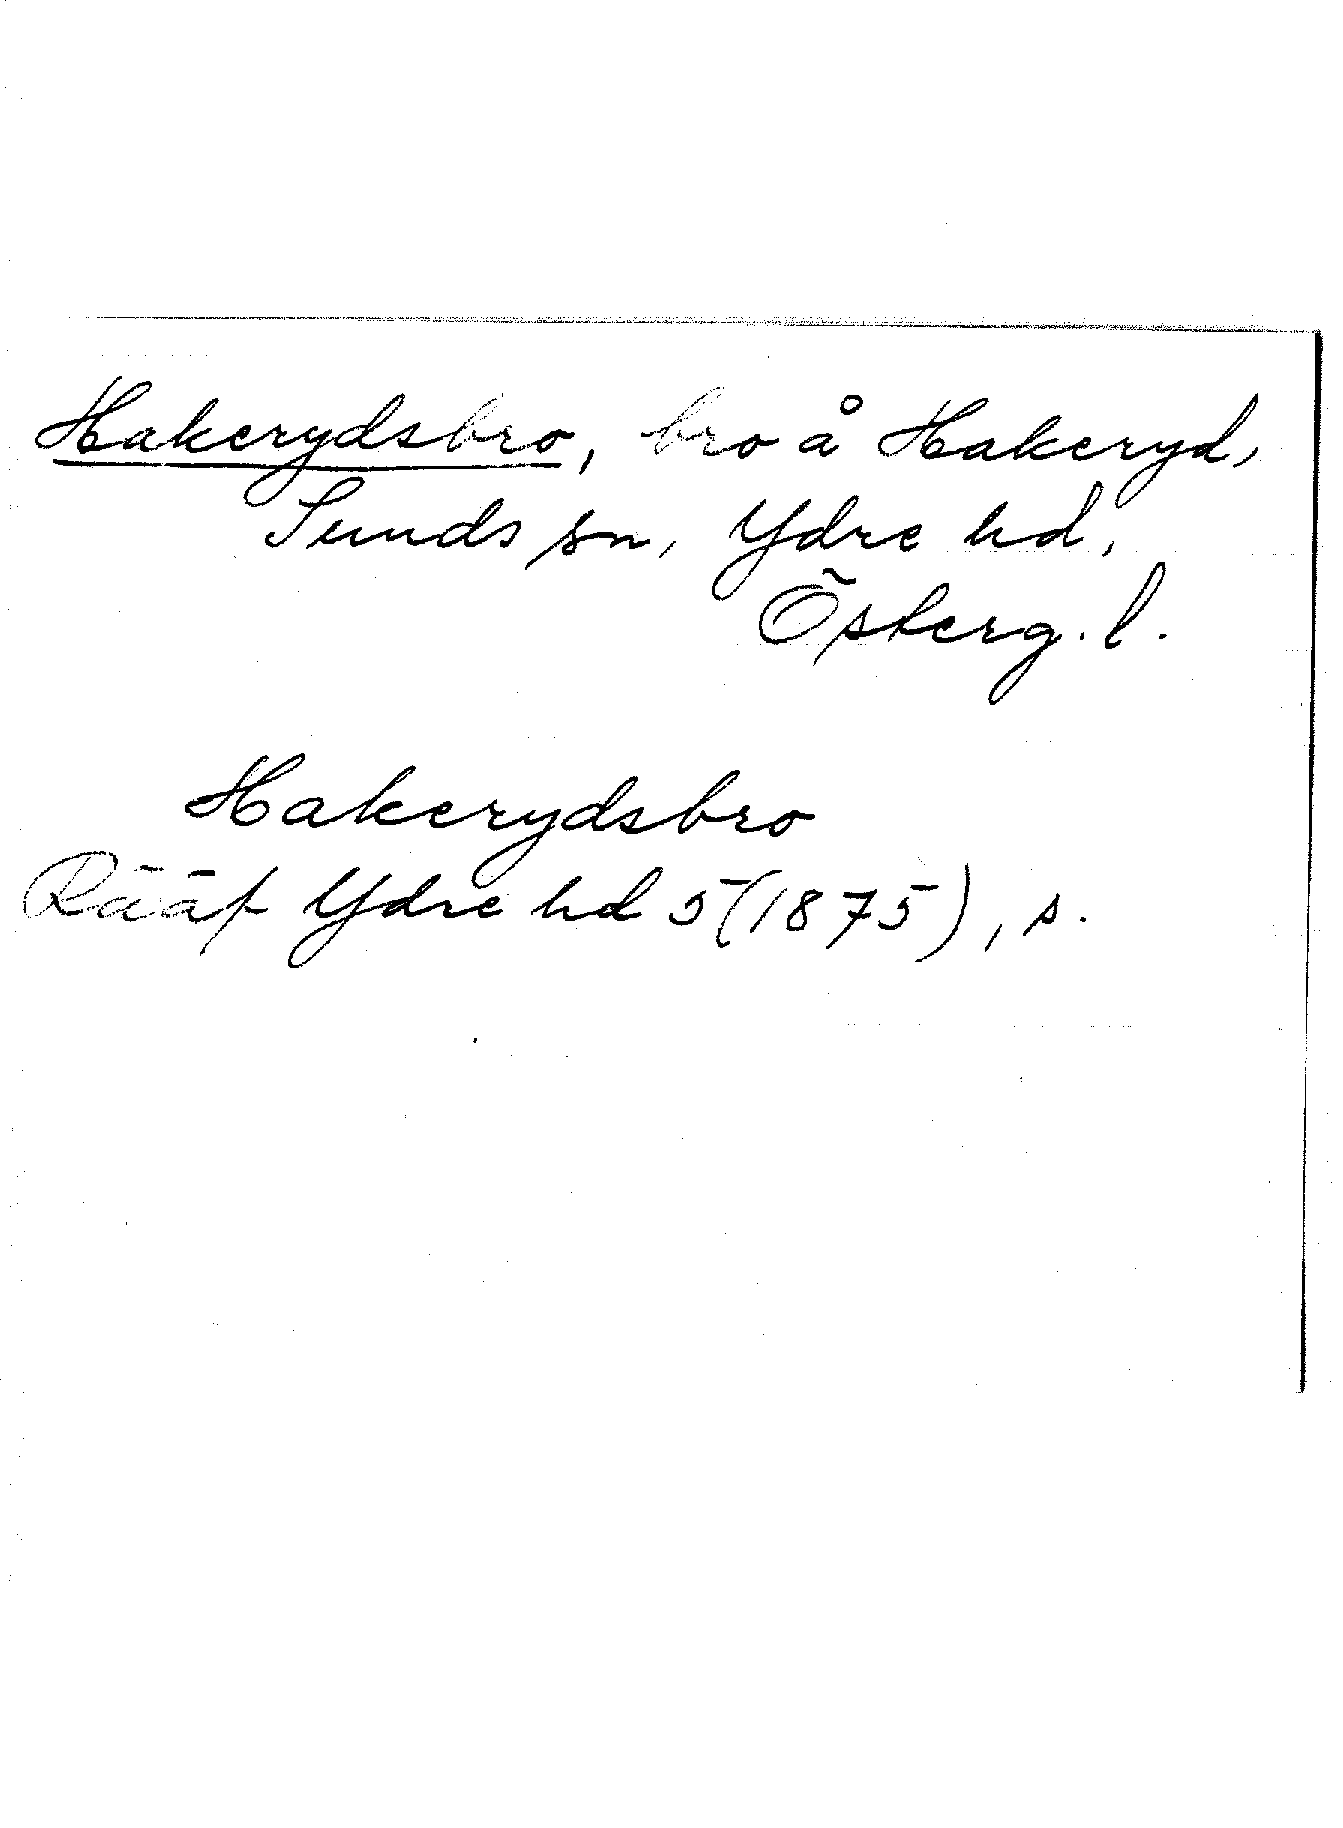 Hakerydsbro, bro å Hakeryd,
Sunds sn, Ydre hd,
Österg. l.
Hakerydsbro
Rääf Ydre hd 5 (1875), s.